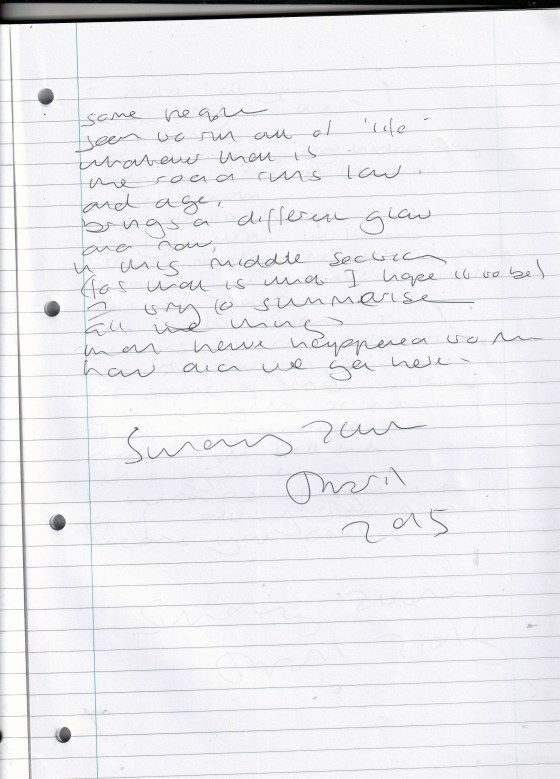 some people
seem to run out of 'life'
whatever that is
the road runs low.
and age,
brings a different glow
and now,
in this middle section
(for that is what I hope it to be)
I try to summarise
all the things
that have happened to
how did we get here.
Sunday
April
2015